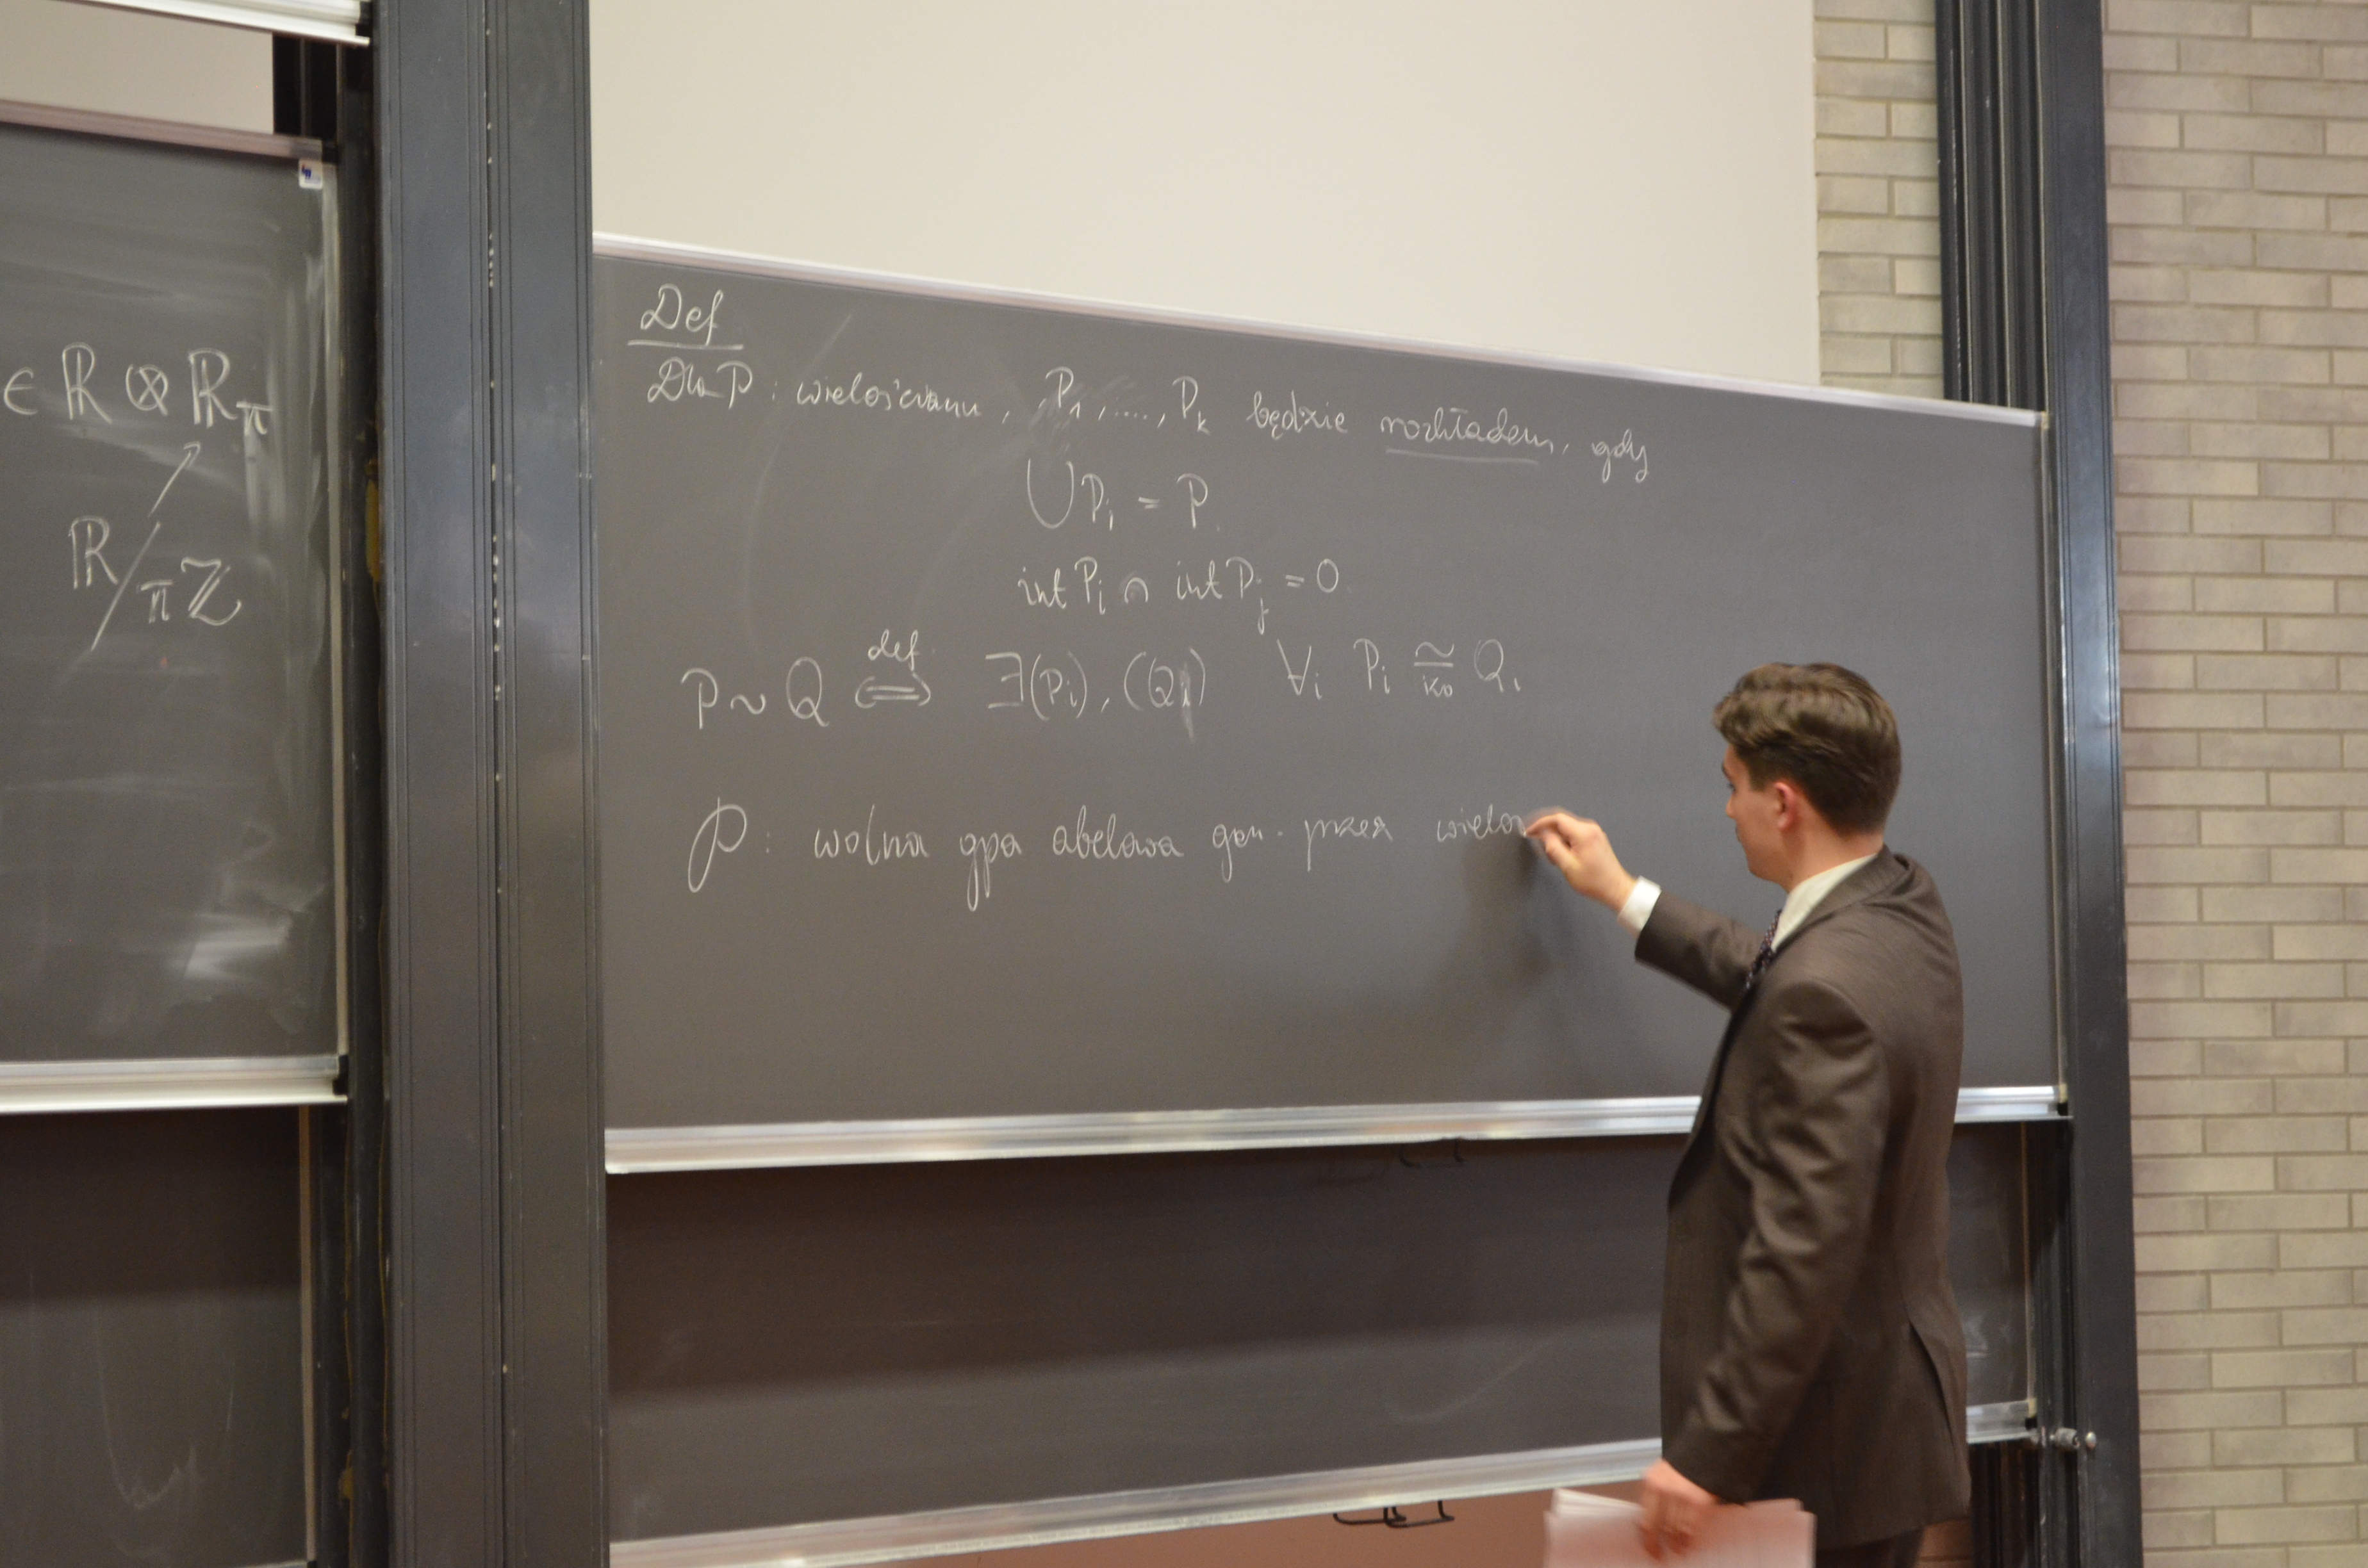 ∈ ℝ ⊗ ℝ_π
ℝ/πℤ
Def
Dla P : wielościanu, P₁, ...., P_k będzie rozkładem, gdy
⋃P_i = P
int P_i ∩ int P_j = 0.
P ~ Q ⟺ def. ∃(P_i), (Q_i) ∀_i P_i ≅ Q_i
𝒫 : wolna gpa abelowa gen. przez wielo